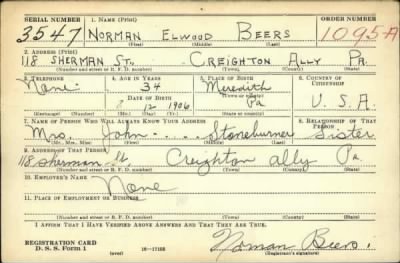 SERIAL NUMBER 1. NAME (Print) ORDER NUMBER
3547 NORMAN ELWOOD BEERS 1095-A
(First) (Middle) (Last)
2. ADDRESS (Print)
118 SHERMAN ST. CREIGHTON ALLY PA.
(Number and street or R. F. D. number) (Town) (County) (State)
3. TELEPHONE 4. AGE IN YEARS 5. PLACE OF BIRTH 6. COUNTRY OF CITIZENSHIP
None 34 Meredith
DATE OF BIRTH (Town or county)
8 12 1906 Pa U.S.A.
(Exchange) (Number) (Mo.) (Day) (Yr.) (State or country)
7. NAME OF PERSON WHO WILL ALWAYS KNOW YOUR ADDRESS 8. RELATIONSHIP OF THAT PERSON
Mrs. John Stoneburner Sister
(Mr., Mrs., Miss) (First) (Middle) (Last)
9. ADDRESS OF THAT PERSON
118 Sherman St Creighton Ally Pa.
(Number and street or R. F. D. number) (Town) (County) (State)
10. EMPLOYER'S NAME
None
11. PLACE OF EMPLOYMENT OR BUSINESS
(Number and street or R. F. D. number) (Town) (County) (State)
I AFFIRM THAT I HAVE VERIFIED ABOVE ANSWERS AND THAT THEY ARE TRUE.
REGISTRATION CARD
D. S. S. Form 1 (over) 16-17105 Norman Beers.
(Registrant's signature)